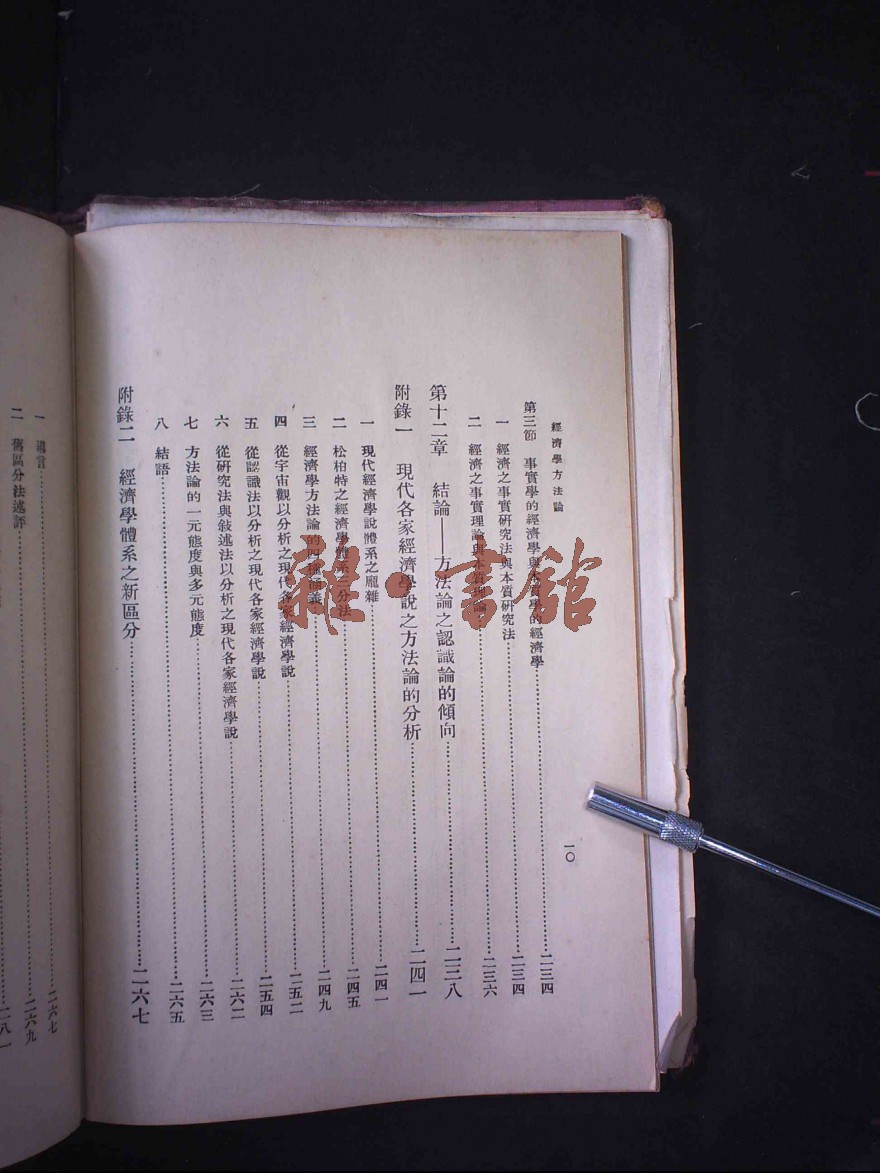 經濟學方法論
一〇
第三節 事實學的經濟學與本質學的經濟學……二三四
一 經濟之事實研究法與本質研究法……二三四
二 經濟之事實理論與本質理論……二三六
第十二章 結論——方法論之認識論的傾向……二三八
附錄一 現代各家經濟學說之方法論的分析……二四一
一 現代經濟學說體系之龐雜……二四一
二 松柏特之經濟學體系三分法……二四五
三 經濟學方法論的四種涵義……二四九
四 從宇宙觀以分析之現代各家經濟學說……二五二
五 從認識法以分析之現代各家經濟學說……二五四
六 從研究法與敍述法以分析之現代各家經濟學說……二六二
七 方法論的一元態度與多元態度……二六三
八 結語……二六五
附錄二 經濟學體系之新區分……二六七
一 導言……二六七
二 舊區分法述評……二六九
二八一
雜·書館